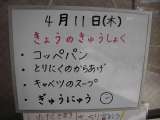 4月11日(木)
きょうのきゅうしょく
・コッペパン
・とりにくのからあげ
・キャベツのスープ
・ぎゅうにゅう